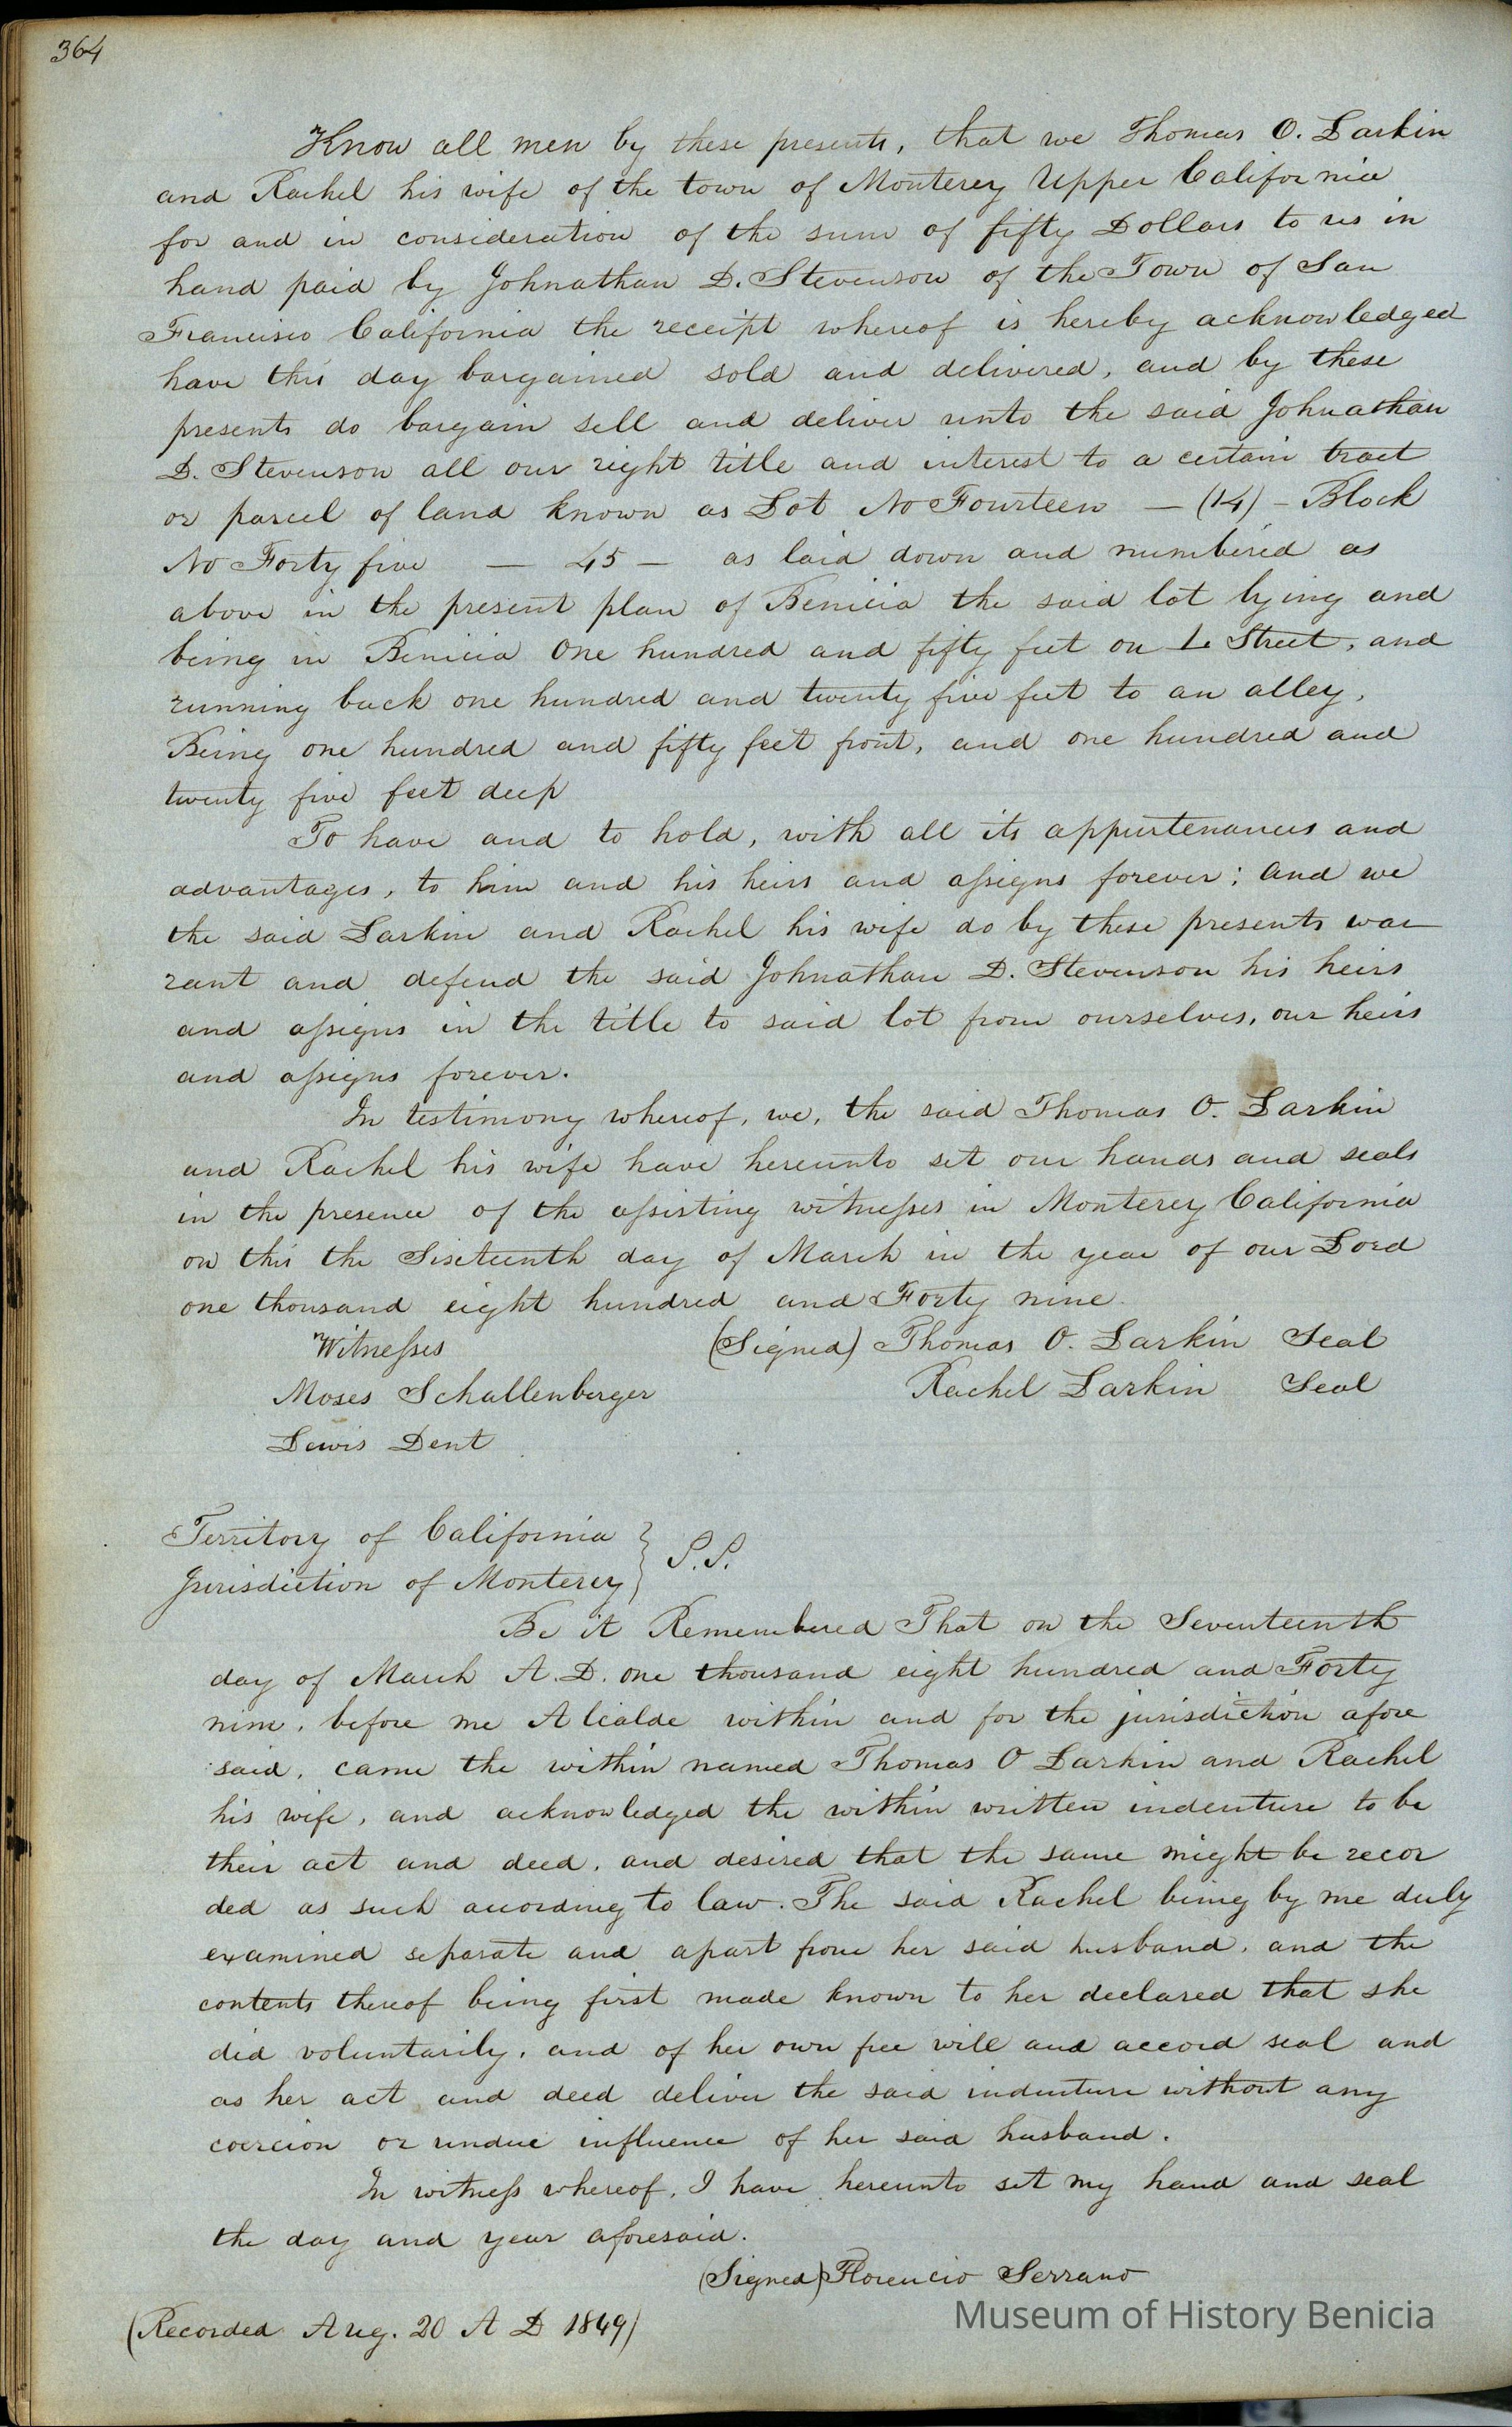 364
Know all men by these presents, that we Thomas O. Larkin
and Rachel his wife of the town of Monterey Upper California
for and in consideration of the sum of fifty Dollars to us in
hand paid by Johnathan D. Stevenson of the Town of San
Francisco California the receipt whereof is hereby acknowledged
have this day bargained sold and delivered, and by these
presents do bargain sell and deliver unto the said Johnathan
D. Stevenson all our right title and interest to a certain tract
or parcel of land known as Lot No Fourteen — (14) – Block
No Forty five — 45 — as laid down and numbered as
above in the present plan of Benicia the said lot lying and
being in Benicia One hundred and fifty feet on L Street, and
running back one hundred and twenty five feet to an alley,
Being one hundred and fifty feet front, and one hundred and
twenty five feet deep
To have and to hold, with all its appurtenances and
advantages, to him and his heirs and assigns forever; and we
the said Larkin and Rachel his wife do by these presents war
rant and defend the said Johnathan D. Stevenson his heirs
and assigns in the title to said lot from ourselves, our heirs
and assigns forever.
In testimony whereof, we, the said Thomas O. Larkin
and Rachel his wife have hereunto set our hands and seals
in the presence of the assisting witnesses in Monterey California
on this the Sixteenth day of March in the year of our Lord
one thousand eight hundred and Forty nine
Witnesses (Signed) Thomas O. Larkin Seal
Moses Schallenberger Rachel Larkin Seal
Lewis Dent
Territory of California } S.S.
Jurisdiction of Monterey
Be it Remembered That on the Seventeenth
day of March A.D. one thousand eight hundred and Forty
nine, before me Alcalde within and for the jurisdiction afore
said, came the within named Thomas O Larkin and Rachel
his wife, and acknowledged the within written indenture to be
their act and deed, and desired that the same might be recor
ded as such according to law. The said Rachel being by me duly
examined separate and apart from her said husband, and the
contents thereof being first made known to her declared that she
did voluntarily, and of her own free will and accord seal and
as her act and deed deliver the said indenture without any
coercion or undue influence of her said husband.
In witness whereof, I have hereunto set my hand and seal
the day and year aforesaid.
(Signed) Florencio Serrano
(Recorded Aug. 20 A D 1849)
Museum of History Benicia